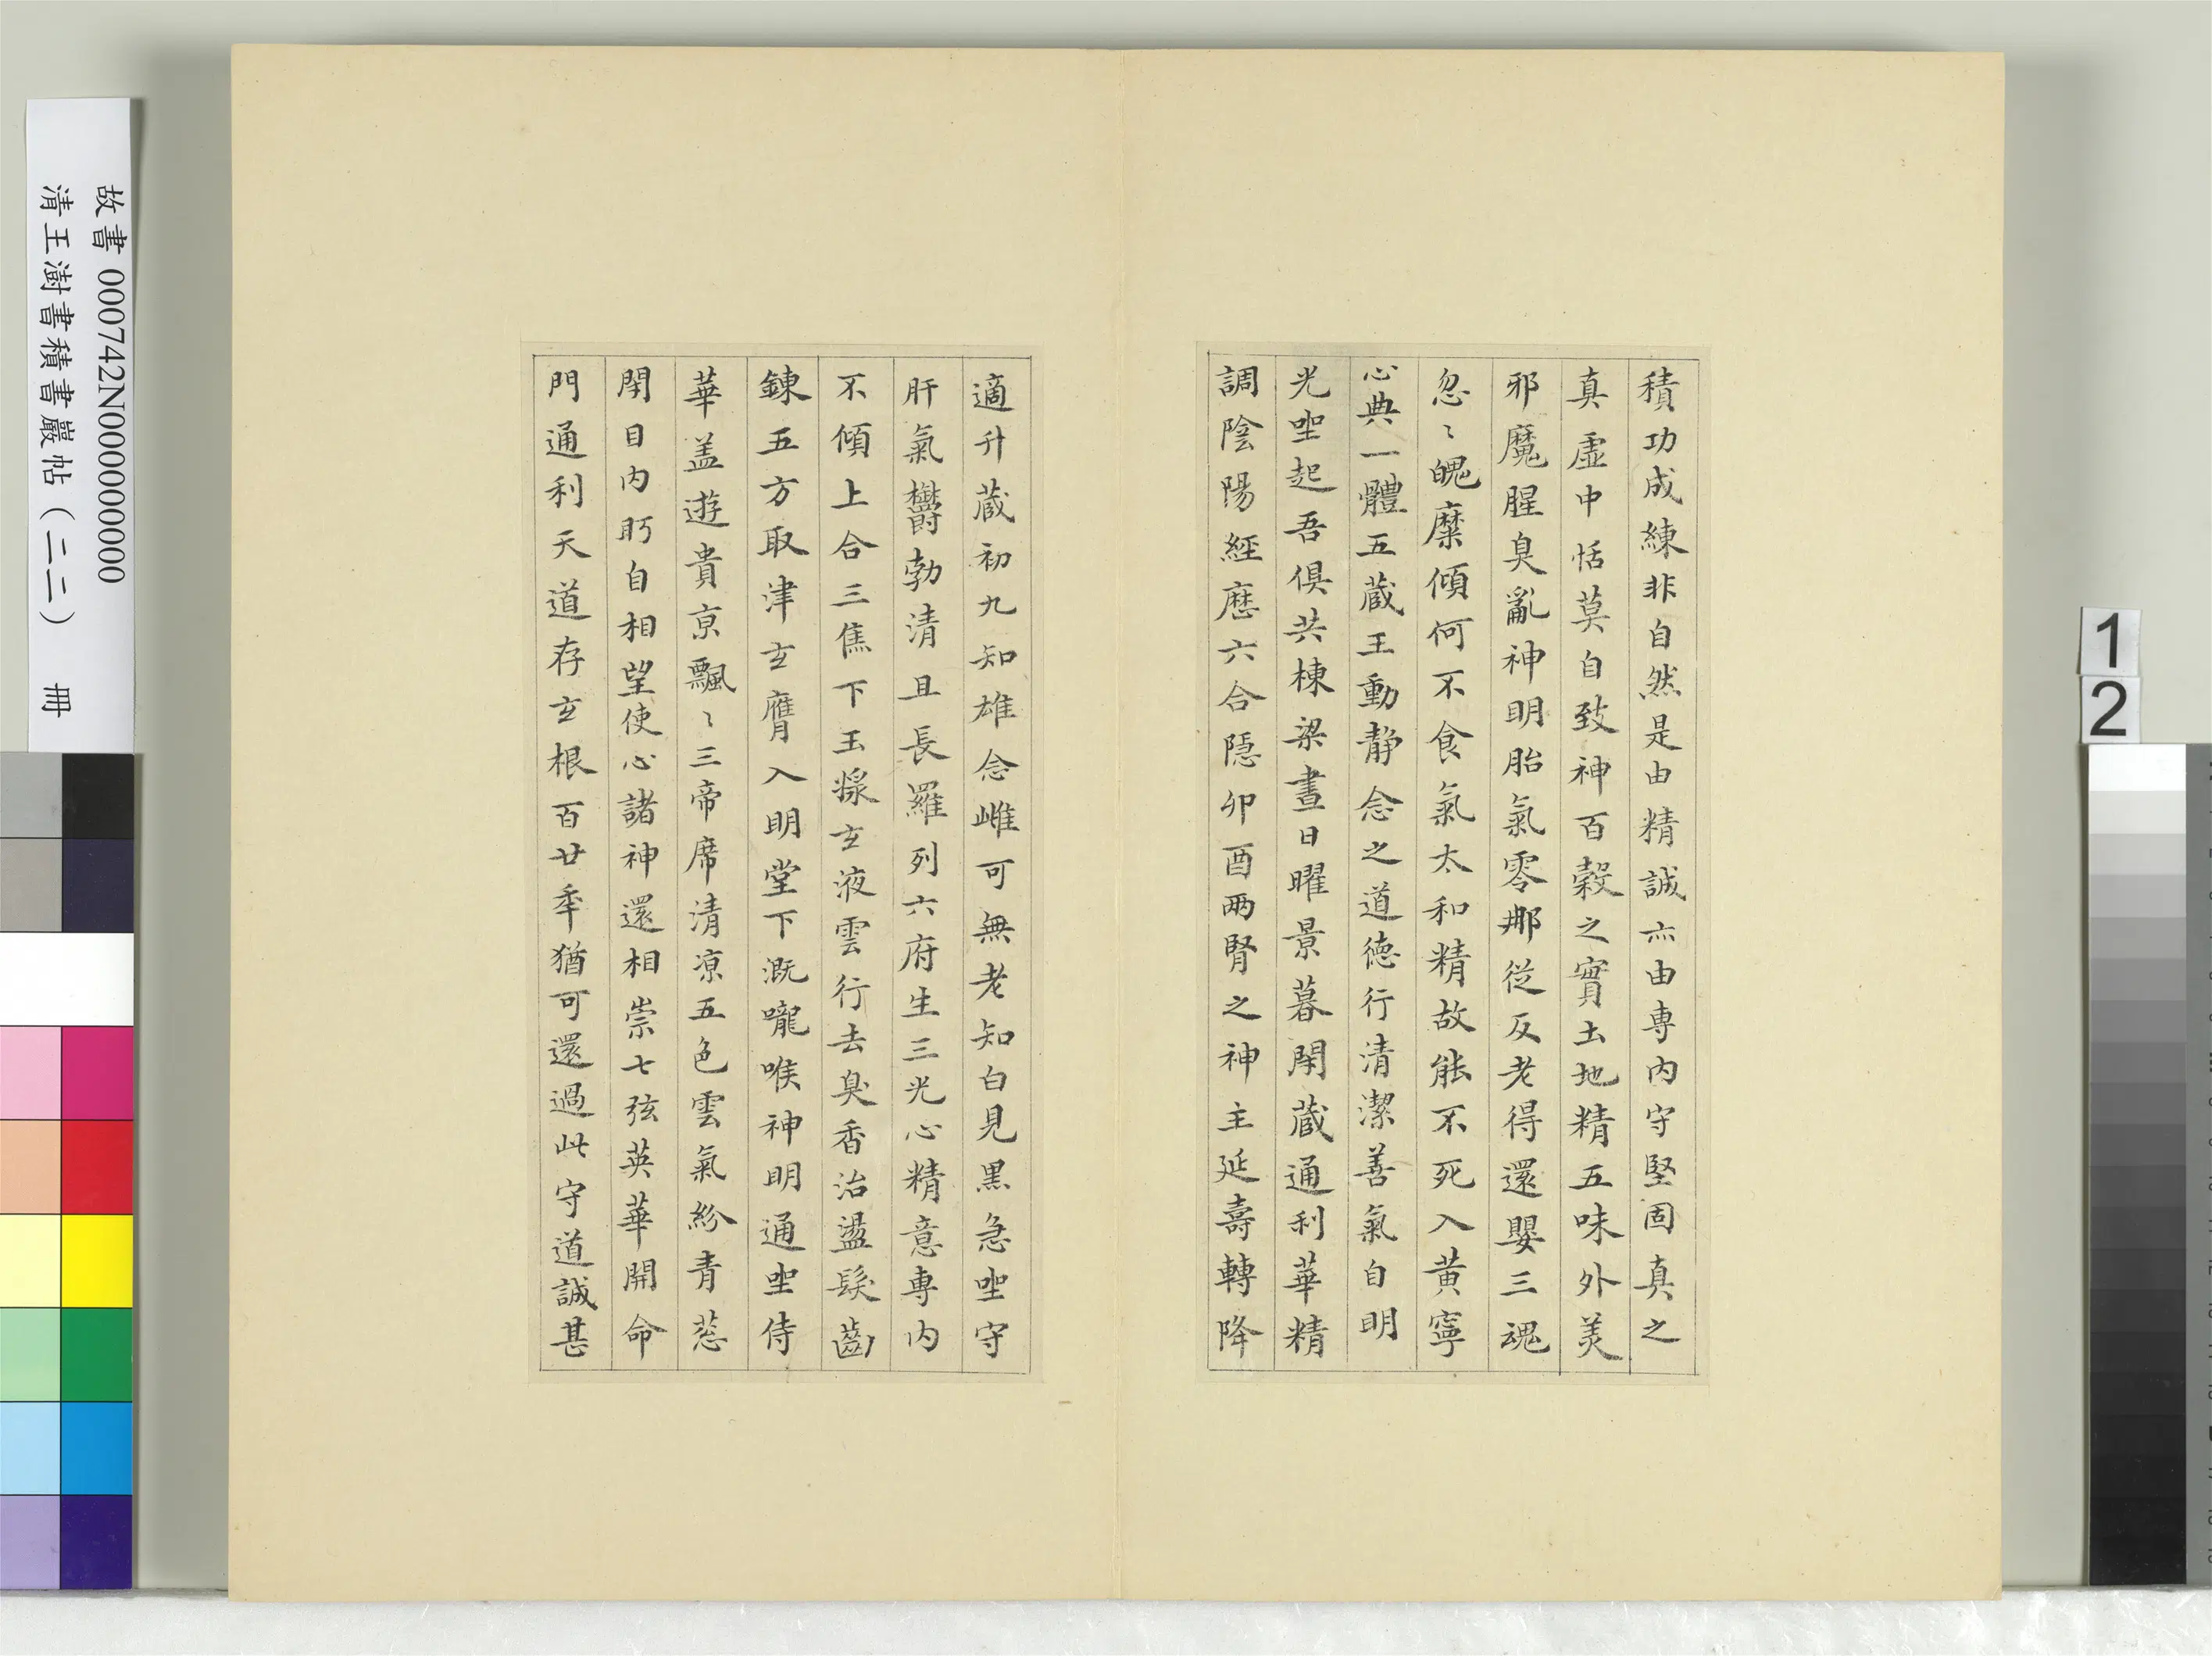 積功成練非自然是由精誠亦由專内守堅固真之
真虛中恬莫自致神百穀之實土地精五味外美
邪魔腥臭亂神明胎氣零那從反老得還嬰三魂
忽〻魄糜傾何不食氣太和精故能不死入黃寧
心典一體五蔵王動静念之道德行清潔善氣自明
光坐起吾俱共棟梁晝日曜景暮閇蔵通利華精
調陰陽經歷六合隱卯酉兩腎之神主延壽轉降
適升蔵初九知雄念雌可無老知白見黑急坐守
肝氣欝勃清且長羅列六府生三光心精意專内
不傾上合三焦下玉漿玄液雲行去臭香治盪髮齒
錬五方取津玄膺入明堂下溉嚨喉神明通坐侍
華盖遊貴京飄〻三帝席清凉五色雲氣紛青葱
閇目内眄自相望使心諸神還相崇七弦英華開命
門通利天道存玄根百廿年猶可還過此守道誠甚
故書 000742N000000000
清王澍書積書巖帖（二二） 冊
1
2